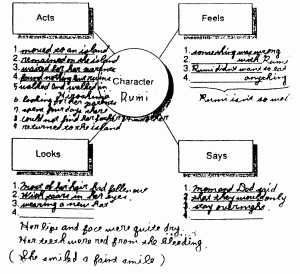 Acts
1. moved to an island
2. remained on the island
3. waited for her parents
4. found nothing but ruins
5. walked and walked in
Hiroshima
6 looking for her parents
7 spent four days there
8 could not find her father, mother
9 returned to the island
Feels
1. something was wrong
with Rumi
2.
3. Rumi didn't want to eat
4. anything
Rumi isn't so
Character
Rumi
Looks
1. Most of her hair had fallen out
2. With tears in her eyes.
3. wearing a new hat
4.
Her lips and face were quite dry.
Her teeth were red from the bleeding.
(She smiled a faint smile)
Says
1. Mom and Dad said
2. that they would only
3. stay overnight.
4.